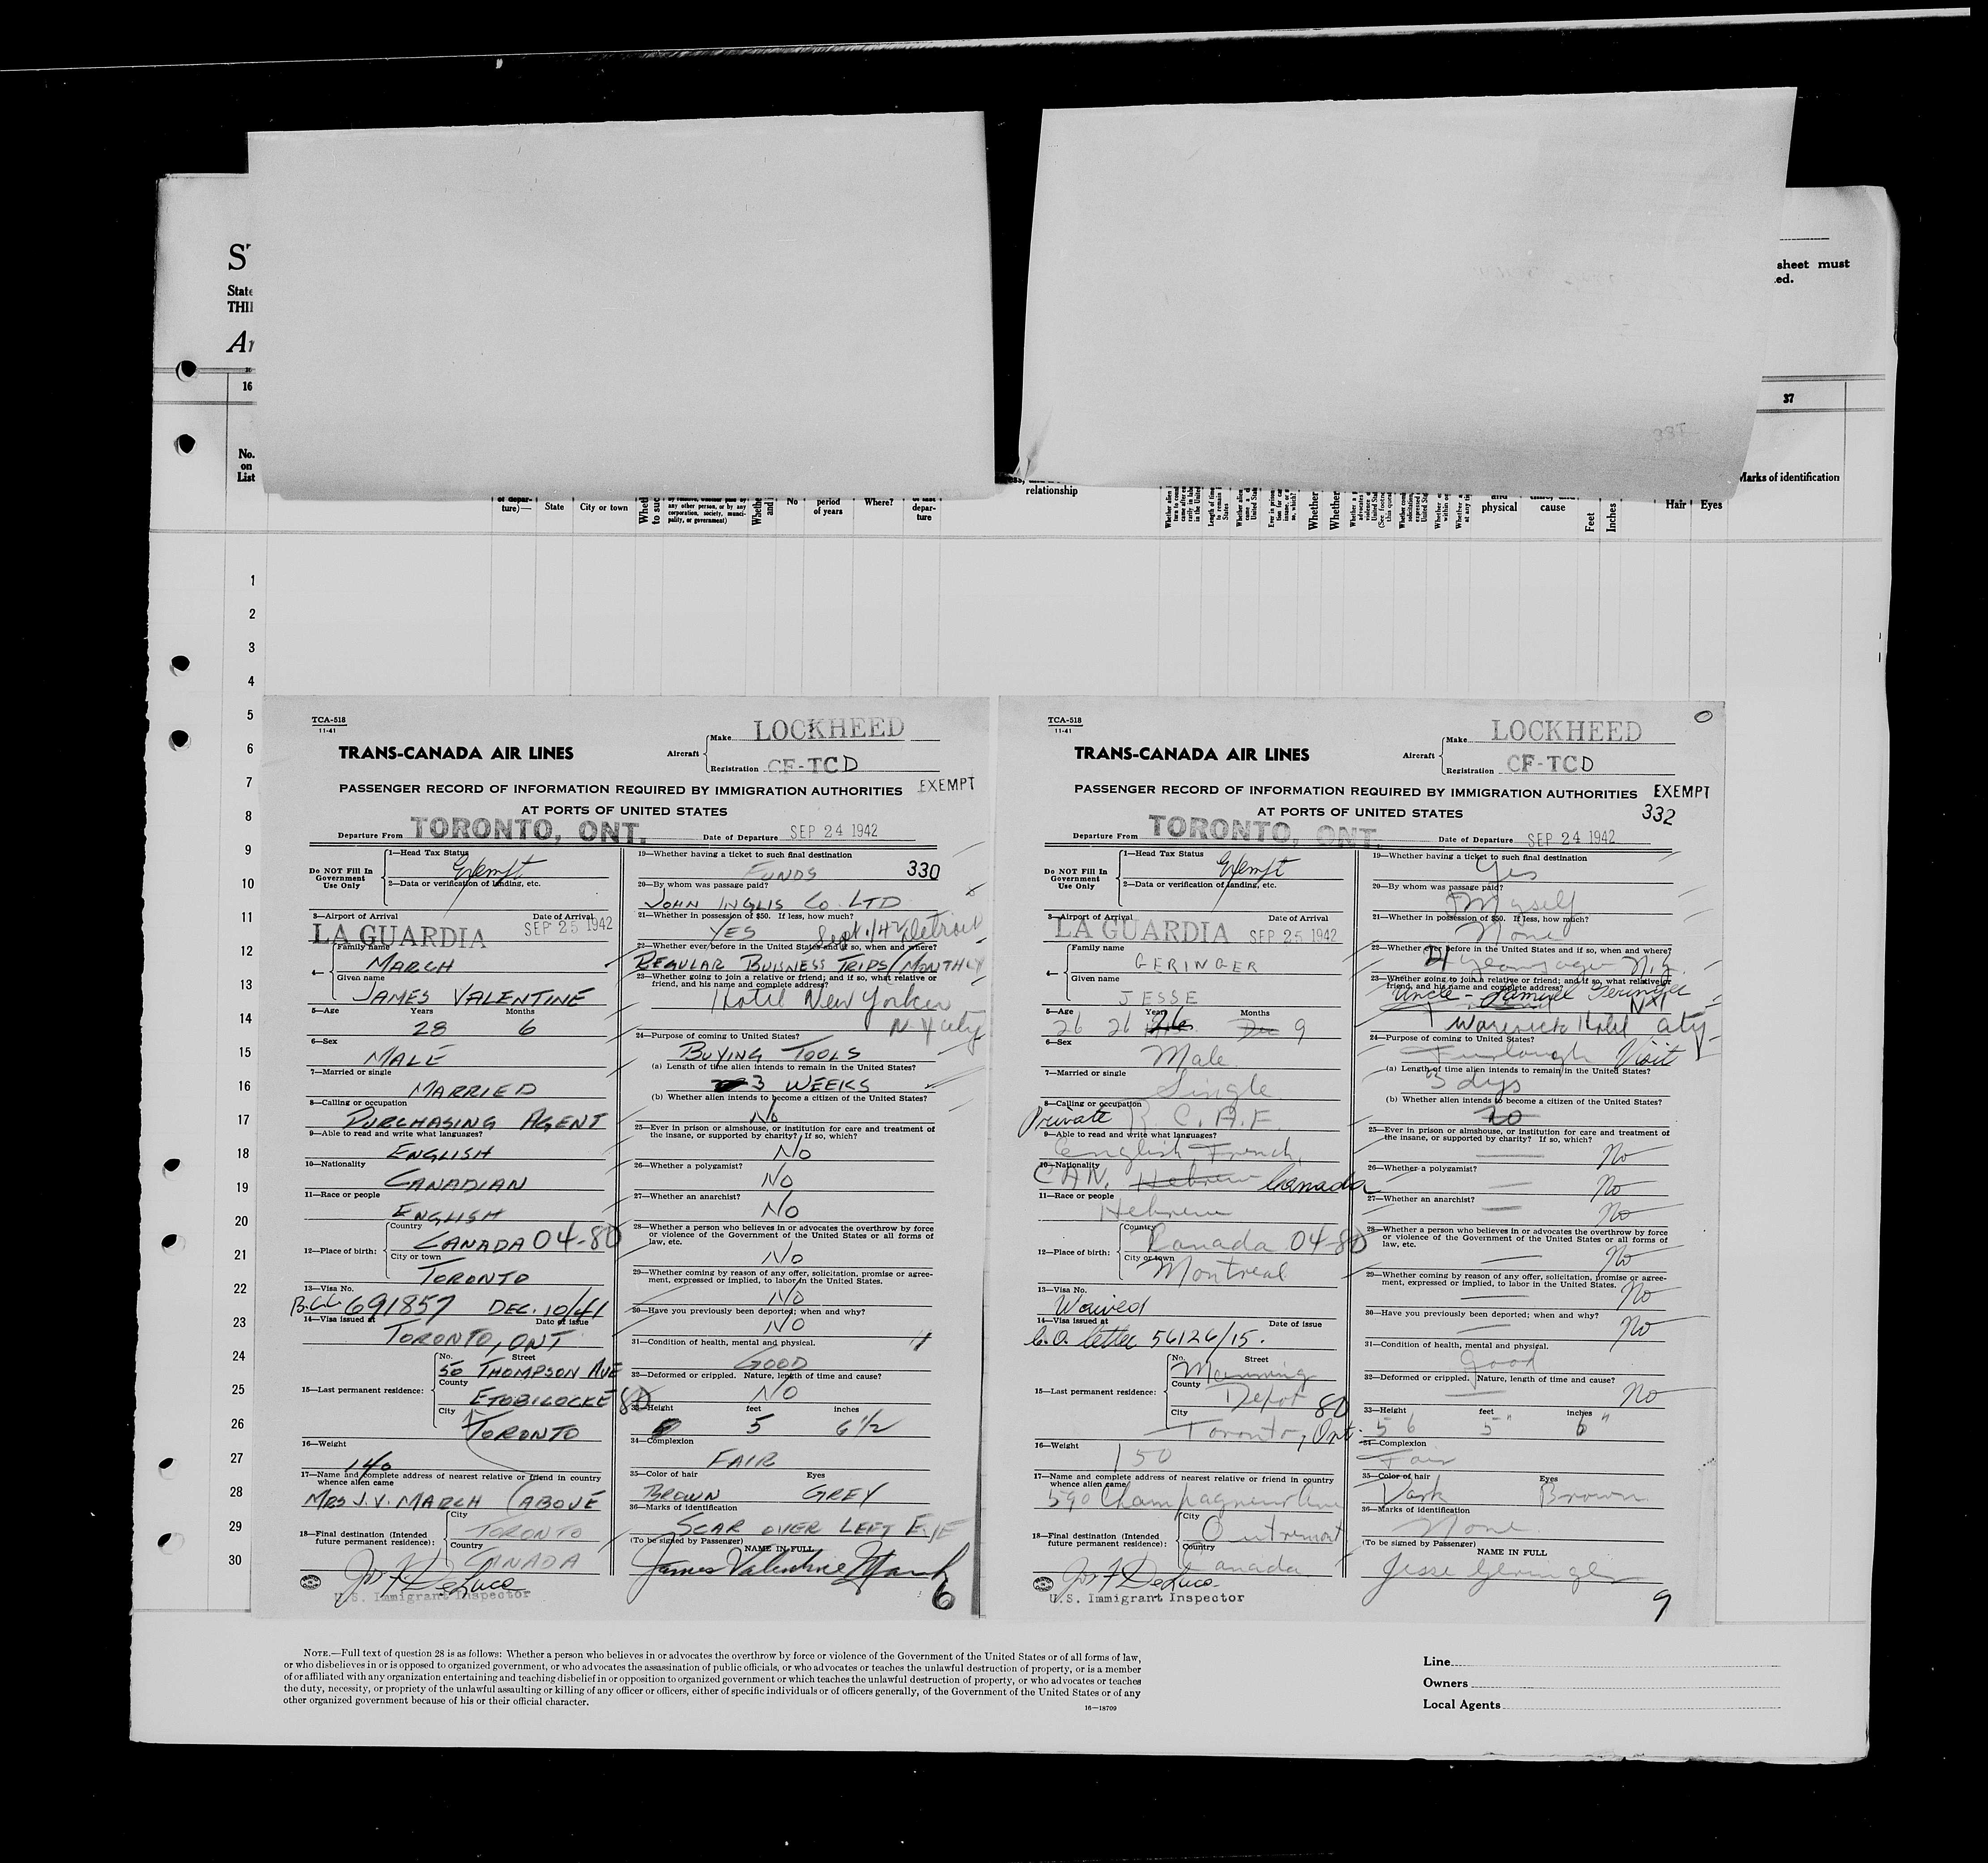 S
State
THI
Ar
sheet must
ed.
16
37
No.
on
List
Marks of identification
of depar-
ture)—
State
City or town
No
period
of years
Where?
depar-
ture
relationship
and
physical
cause
Feet
Inches
Hair
Eyes
1
2
3
4
5
6
7
8
9
10
11
12
13
14
15
16
17
18
19
20
21
22
23
24
25
26
27
28
29
30
TCA-518
11-41
TRANS-CANADA AIR LINES
Aircraft
Make LOCKHEED
Registration CF-TCD
PASSENGER RECORD OF INFORMATION REQUIRED BY IMMIGRATION AUTHORITIES EXEMPT
AT PORTS OF UNITED STATES
Departure From TORONTO, ONT. Date of Departure SEP 24 1942
Do NOT Fill In
Government
Use Only
1—Head Tax Status
Exempt
2—Data or verification of landing, etc.
3—Airport of Arrival Date of Arrival
LA GUARDIA SEP 25 1942
4—
Family name
MARCH
Given name
JAMES VALENTINE
5—Age Years Months
28 6
6—Sex
MALE
7—Married or single
MARRIED
8—Calling or occupation
PURCHASING AGENT
9—Able to read and write what languages?
ENGLISH
10—Nationality
CANADIAN
11—Race or people
ENGLISH
12—Place of birth:
Country
CANADA 04-80
City or town
TORONTO
13—Visa No.
B.C.C. 691857 DEC. 10/41
14—Visa issued at Date of issue
TORONTO, ONT
15—Last permanent residence:
No. Street
50 THOMPSON AVE
County
ETOBICOCKE 80
City
TORONTO
16—Weight
140
17—Name and complete address of nearest relative or friend in country
whence alien came
MRS J. V. MARCH (ABOVE
18—Final destination (Intended
future permanent residence):
City
TORONTO
Country
CANADA
Jos F DeLuca
U.S. Immigrant Inspector
19—Whether having a ticket to such final destination
FUNDS 330
20—By whom was passage paid?
JOHN INGLIS CO. LTD
21—Whether in possession of $50. If less, how much?
YES Sept 1/42 Detroit
22—Whether ever before in the United States and if so, when and where?
REGULAR BUISNESS TRIPS (MONTHLY
23—Whether going to join a relative or friend; and if so, what relative or
friend, and his name and complete address?
Hotel New Yorker
N Y City
24—Purpose of coming to United States?
BUYING TOOLS
(a) Length of time alien intends to remain in the United States?
3 WEEKS
(b) Whether alien intends to become a citizen of the United States?
No
25—Ever in prison or almshouse, or institution for care and treatment of
the insane, or supported by charity? If so, which?
No
26—Whether a polygamist?
No
27—Whether an anarchist?
No
28—Whether a person who believes in or advocates the overthrow by force
or violence of the Government of the United States or all forms of
law, etc.
No
29—Whether coming by reason of any offer, solicitation, promise or agree-
ment, expressed or implied, to labor in the United States.
No
30—Have you previously been deported; when and why?
No
31—Condition of health, mental and physical.
GOOD
32—Deformed or crippled. Nature, length of time and cause?
No
33—Height feet inches
5 6 1/2
34—Complexion
FAIR
35—Color of hair Eyes
BROWN GREY
36—Marks of identification
SCAR OVER LEFT EYE
(To be signed by Passenger) NAME IN FULL
James Valentine March
6
TCA-518
11-41
TRANS-CANADA AIR LINES
Aircraft
Make LOCKHEED
Registration CF-TCD
PASSENGER RECORD OF INFORMATION REQUIRED BY IMMIGRATION AUTHORITIES EXEMPT
AT PORTS OF UNITED STATES 332
Departure From TORONTO, ONT. Date of Departure SEP 24 1942
Do NOT Fill In
Government
Use Only
1—Head Tax Status
Exempt
2—Data or verification of landing, etc.
3—Airport of Arrival Date of Arrival
LA GUARDIA SEP 25 1942
4—
Family name
GERINGER
Given name
JESSE
5—Age Years Months
26 26 26 Dec 9
6—Sex
Male
7—Married or single
Single
8—Calling or occupation
Private R.C.A.F.
9—Able to read and write what languages?
English, French,
10—Nationality
CAN. Hebrew Canada
11—Race or people
Hebrew
12—Place of birth:
Country
Canada 04-80
City or town
Montreal
13—Visa No.
Waived
14—Visa issued at Date of issue
C.O. letter 56126/15.
15—Last permanent residence:
No. Street
Manning
County
Depot 80
City
Toronto, Ont.
16—Weight
150
17—Name and complete address of nearest relative or friend in country
whence alien came
590 Champagneur
18—Final destination (Intended
future permanent residence):
City
Outremont
Country
Canada
Jos F DeLuca
U.S. Immigrant Inspector
19—Whether having a ticket to such final destination
Yes
20—By whom was passage paid?
Myself
21—Whether in possession of $50. If less, how much?
None
22—Whether ever before in the United States and if so, when and where?
4 years ago N.Y.
23—Whether going to join a relative or friend; and if so, what relative or
friend, and his name and complete address?
Uncle - Samuel Geringer
Warwick Hotel City
24—Purpose of coming to United States?
Furlough Visit
(a) Length of time alien intends to remain in the United States?
3 dys
(b) Whether alien intends to become a citizen of the United States?
no
25—Ever in prison or almshouse, or institution for care and treatment of
the insane, or supported by charity? If so, which?
No
26—Whether a polygamist?
No
27—Whether an anarchist?
No
28—Whether a person who believes in or advocates the overthrow by force
or violence of the Government of the United States or all forms of
law, etc.
No
29—Whether coming by reason of any offer, solicitation, promise or agree-
ment, expressed or implied, to labor in the United States.
No
30—Have you previously been deported; when and why?
No
31—Condition of health, mental and physical.
good
32—Deformed or crippled. Nature, length of time and cause?
No
33—Height feet inches
5 6 5" 6"
34—Complexion
Fair
35—Color of hair Eyes
Dark Brown
36—Marks of identification
None
(To be signed by Passenger) NAME IN FULL
Jesse Geringer
9
NOTE.—Full text of question 28 is as follows: Whether a person who believes in or advocates the overthrow by force or violence of the Government of the United States or of all forms of law,
or who disbelieves in or is opposed to organized government, or who advocates the assassination of public officials, or who advocates or teaches the unlawful destruction of property, or is a member
of or affiliated with any organization entertaining and teaching disbelief in or opposition to organized government or which teaches the unlawful destruction of property, or who advocates or teaches
the duty, necessity, or propriety of the unlawful assaulting or killing of any officer or officers, either of specific individuals or of officers generally, of the Government of the United States or of any
other organized government because of his or their official character.
16—18709
Line
Owners
Local Agents